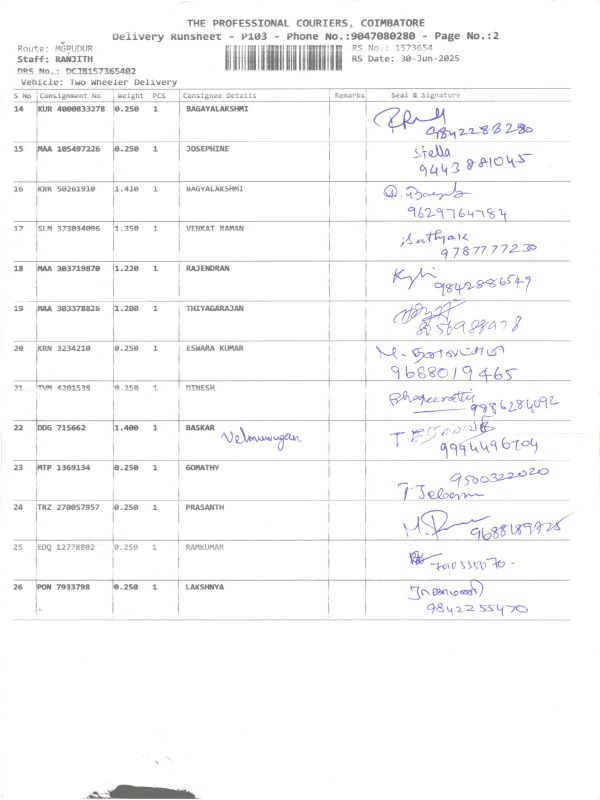 THE PROFESSIONAL COURIERS, COIMBATORE
Delivery Runsheet - P103 - Phone No.:9047080280 - Page No.:2
Route: MGPUDUR RS No.: 1573654
Staff: RANJITH RS Date: 30-Jun-2025
DRS No.: DCJB157365402
Vehicle: Two Wheeler Delivery
S No Consignment No Weight PCS Consignee Details Remarks Seal & Signature
14 KUR 4000833278 0.250 1 BAGAYALAKSHMI
9842283280
15 MAA 105497226 0.250 1 JOSEPHINE Stella
9443881045
16 KRR 50261910 1.410 1 BAGYALAKSHMI
9629764784
17 SLM 373034096 1.350 1 VENKAT RAMAN Sathyak
9787777230
18 MAA 303719870 1.220 1 RAJENDRAN
9842886549
19 MAA 303378826 1.200 1 THIYAGARAJAN
20 KRN 3234210 0.250 1 ESWARA KUMAR M.
9688019465
21 TVM 4201539 0.250 1 DINESH
9886284092
22 DDG 715662 1.400 1 BASKAR Velmurugan
9994496704
23 MTP 1369134 0.250 1 GOMATHY 9500322020
24 TRZ 270057957 0.250 1 PRASANTH
25 EDQ 12778802 0.250 1 RAMKUMAR
26 PON 7933798 0.250 1 LAKSHNYA
9842255470